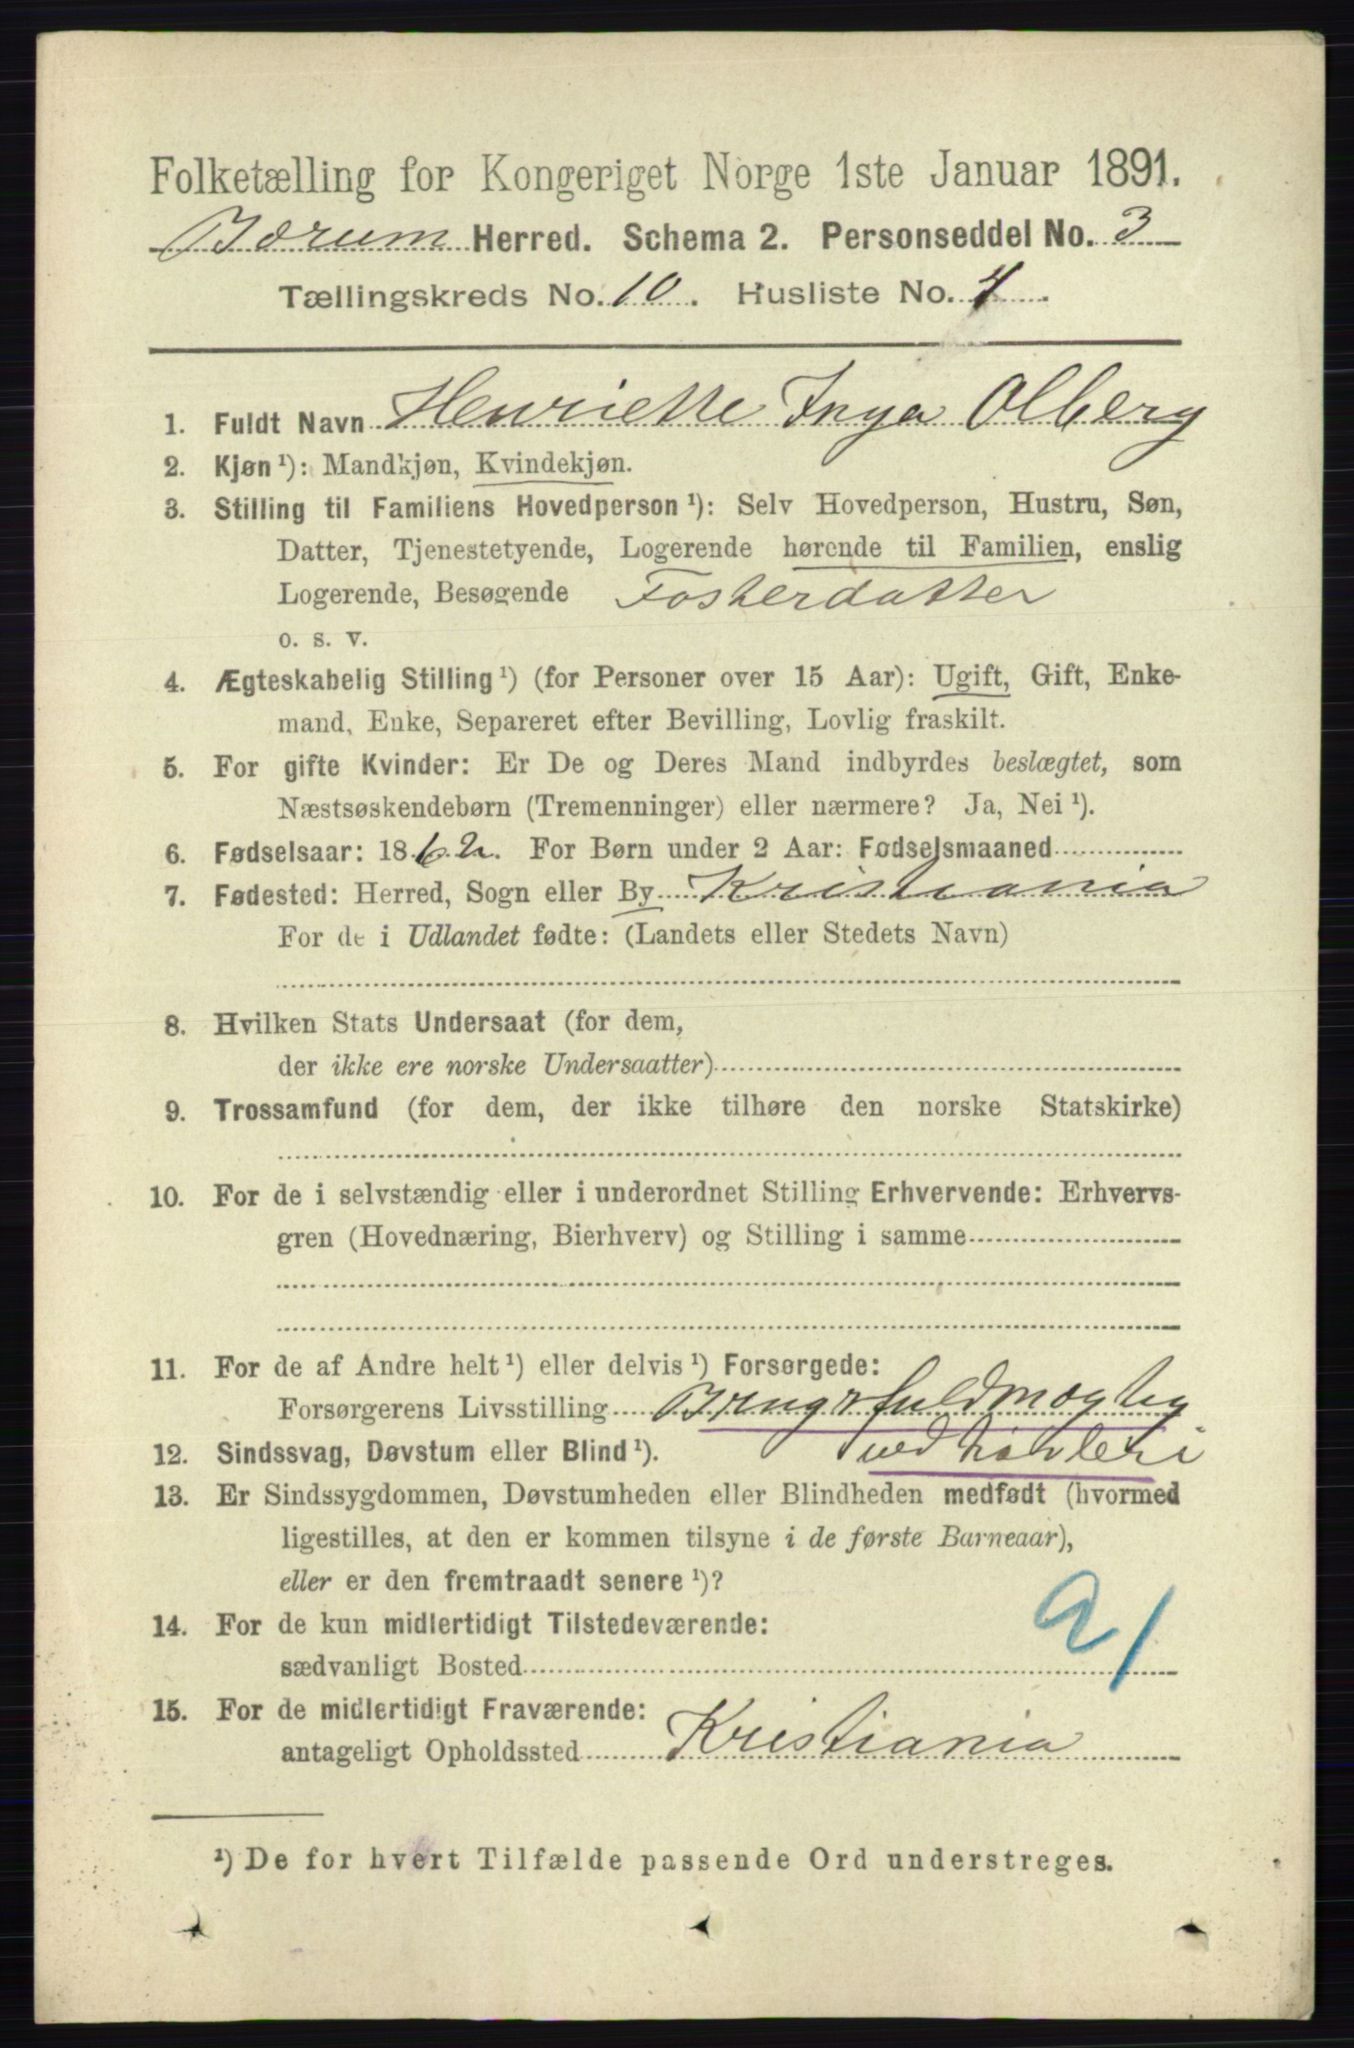 Folketælling for Kongeriget Norge 1ste Januar 1891.
Bærum Herred. Schema 2. Personseddel No. 3
Tællingskreds No. 10. Husliste No. 4.
1. Fuldt Navn Henriette Inga Olberg
2. Kjøn ¹): Mandkjøn, Kvindekjøn.
3. Stilling til Familiens Hovedperson ¹): Selv Hovedperson, Hustru, Søn,
Datter, Tjenestetyende, Logerende hørende til Familien, enslig
Logerende, Besøgende Fosterdatter
o. s. v.
4. Ægteskabelig Stilling ¹) (for Personer over 15 Aar): Ugift, Gift, Enke-
mand, Enke, Separeret efter Bevilling, Lovlig fraskilt.
5. For gifte Kvinder: Er De og Deres Mand indbyrdes beslægtet, som
Næstsøskendebørn (Tremenninger) eller nærmere? Ja, Nei ¹).
6. Fødselsaar: 1862. For Børn under 2 Aar: Fødselsmaaned
7. Fødested: Herred, Sogn eller By Kristiania
For de i Udlandet fødte: (Landets eller Stedets Navn)
8. Hvilken Stats Undersaat (for dem,
der ikke ere norske Undersaatter)
9. Trossamfund (for dem, der ikke tilhøre den norske Statskirke)
10. For de i selvstændig eller i underordnet Stilling Erhvervende: Erhvervs-
gren (Hovednæring, Bierhverv) og Stilling i samme
11. For de af Andre helt ¹) eller delvis ¹) Forsørgede:
Forsørgerens Livsstilling Brugsfuldmægtig
12. Sindssvag, Døvstum eller Blind ¹). ved høvleri
13. Er Sindssygdommen, Døvstumheden eller Blindheden medfødt (hvormed
ligestilles, at den er kommen tilsyne i de første Barneaar),
eller er den fremtraadt senere ¹)?
14. For de kun midlertidigt Tilstedeværende:
sædvanligt Bosted
15. For de midlertidigt Fraværende:
antageligt Opholdssted Kristiania
¹) De for hvert Tilfælde passende Ord understreges.